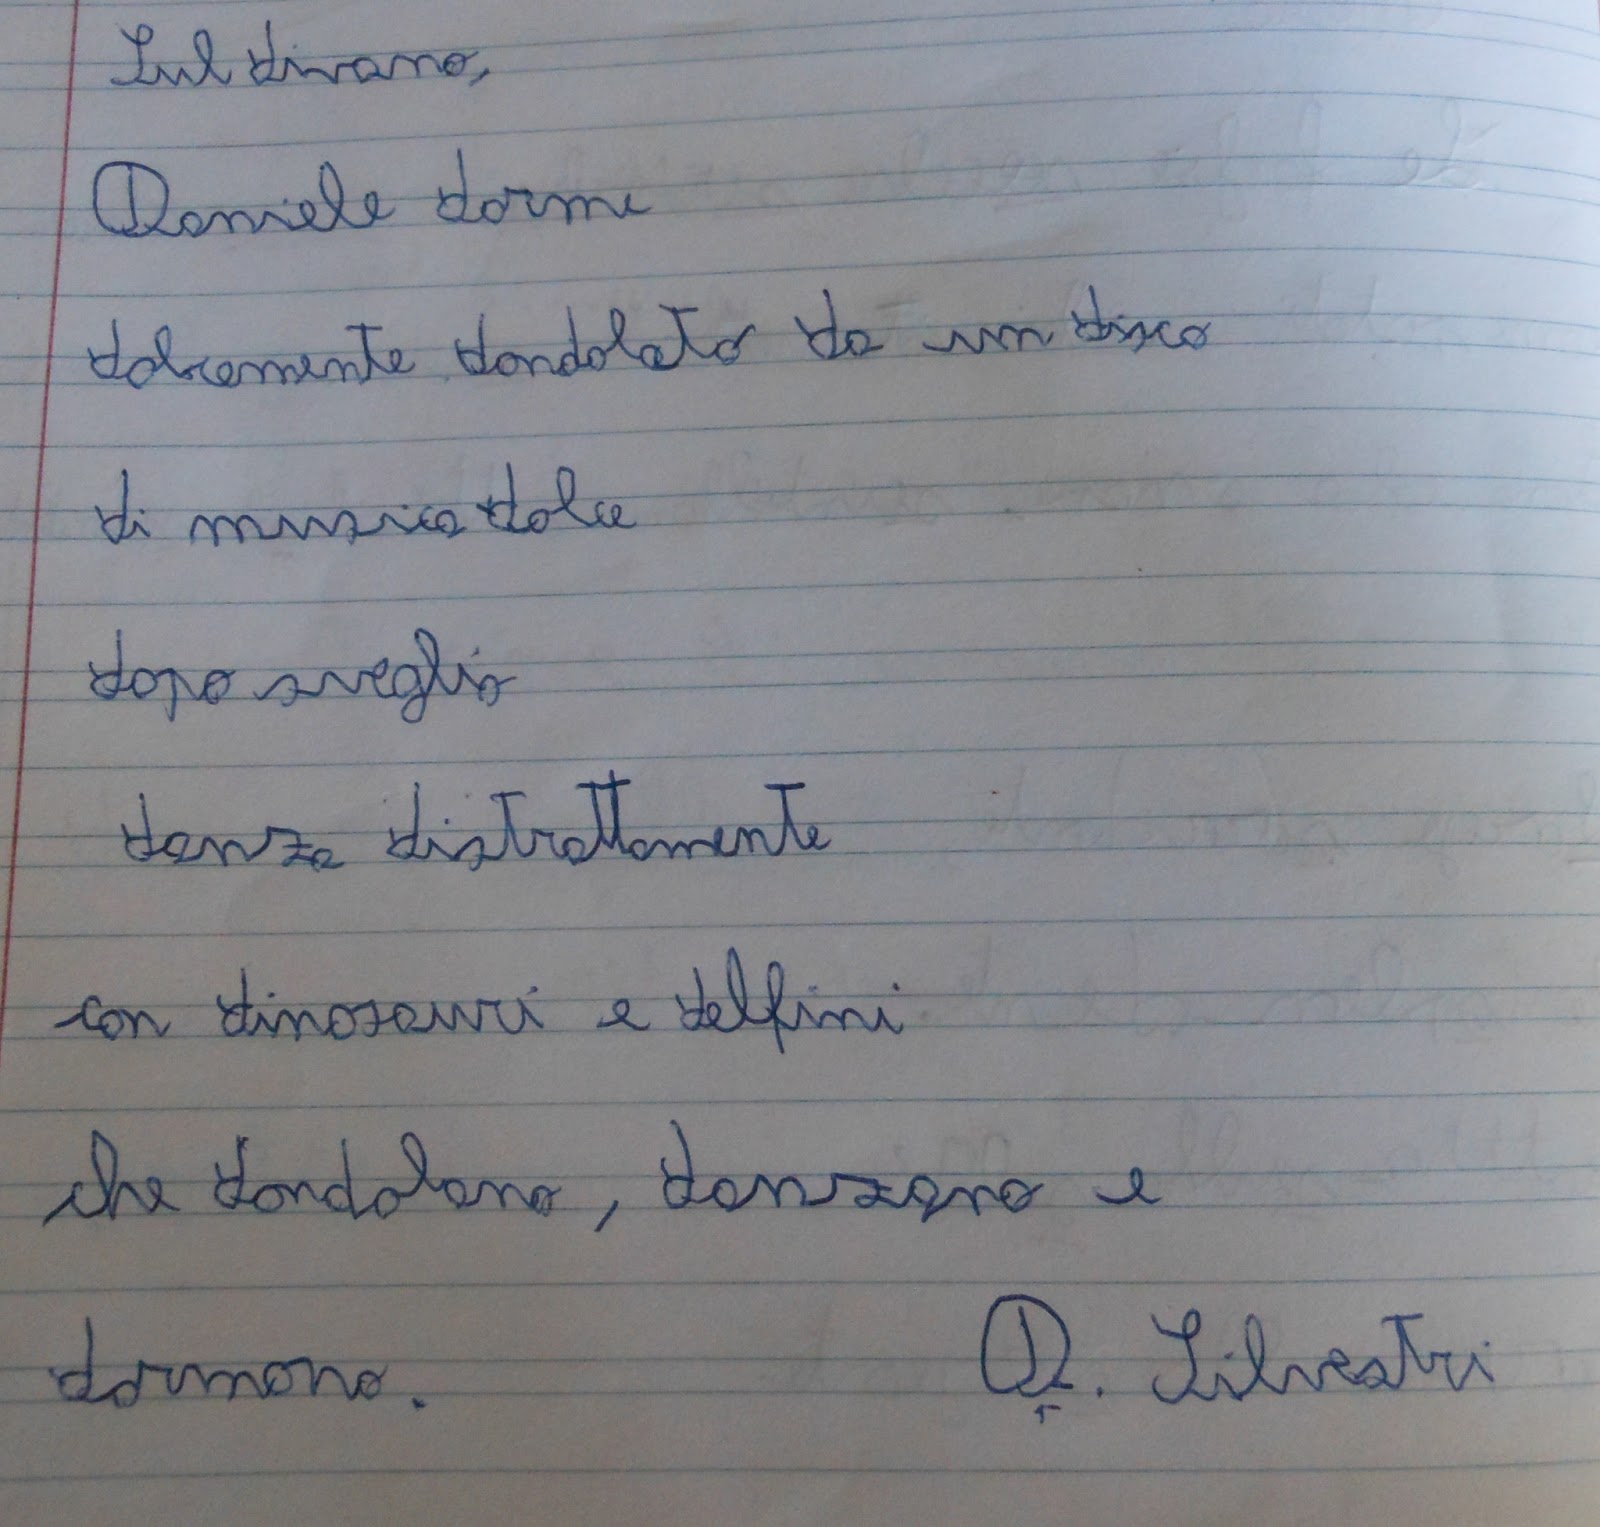 Sul divano,
Daniele dorme
dolcemente dondolato da un disco
di musica dolce
dopo sveglio
danza distrattamente
con dinosauri e delfini
che dondolano, danzano e
dormono. D. Silvestri